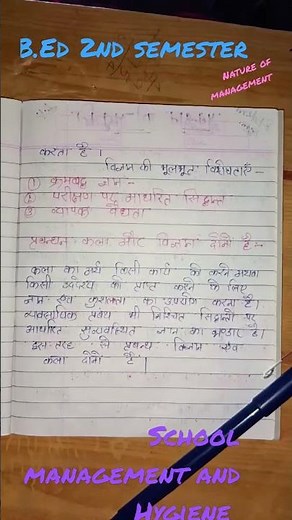 B.Ed 2nd semester
Nature of
management
करता है ।
विज्ञान की मूलभूत विशेषताएँ -
① क्रमबद्ध ज्ञान -
② परीक्षण पर आधारित सिद्धान्त
③ व्यापक वैधता
प्रबन्धन कला और विज्ञान दोनों है -
कला का अर्थ किसी कार्य को करने अथवा
किसी उद्देश्य को प्राप्त करने के लिए
ज्ञान एवं कुशलता का उपयोग करना है।
व्यवसायिक प्रबंध भी निश्चित सिद्धान्तों पर
आधारित सुव्यवस्थित ज्ञान का भण्डार है।
इस तरह से प्रबन्ध विज्ञान एवं
कला दोनों है ।
School
management and
Hygiene